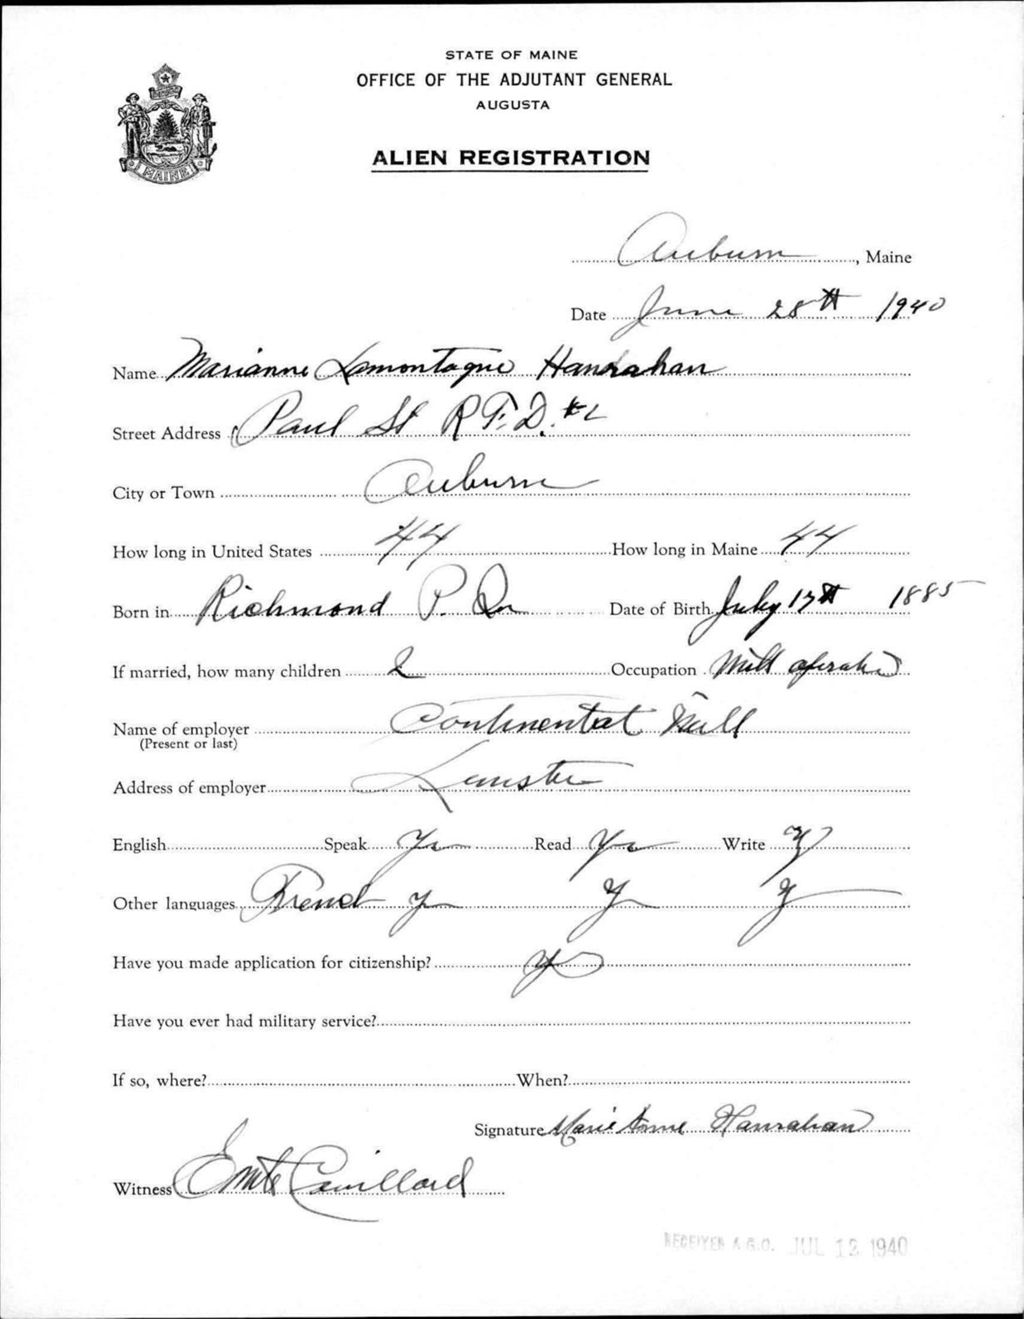 STATE OF MAINE
OFFICE OF THE ADJUTANT GENERAL
AUGUSTA
ALIEN REGISTRATION
MAINE
Auburn, Maine
Date June 28th 1940
Name Marianne Lamontagne Hanrahan
Street Address Paul St R.F.D. #2
City or Town Auburn
How long in United States 44 How long in Maine 44
Born in Richmond P. Qu Date of Birth July 17th 1885
If married, how many children 2 Occupation Mill operative
Name of employer Continental Mill
(Present or last)
Address of employer
English Speak Yes Read Yes Write Y
Other languages French Y Y Y
Have you made application for citizenship? Y
Have you ever had military service?
If so, where? When?
Signature Marie Anne Hanrahan
Witness
RECEIVED A.G.O. JUL 12 1940